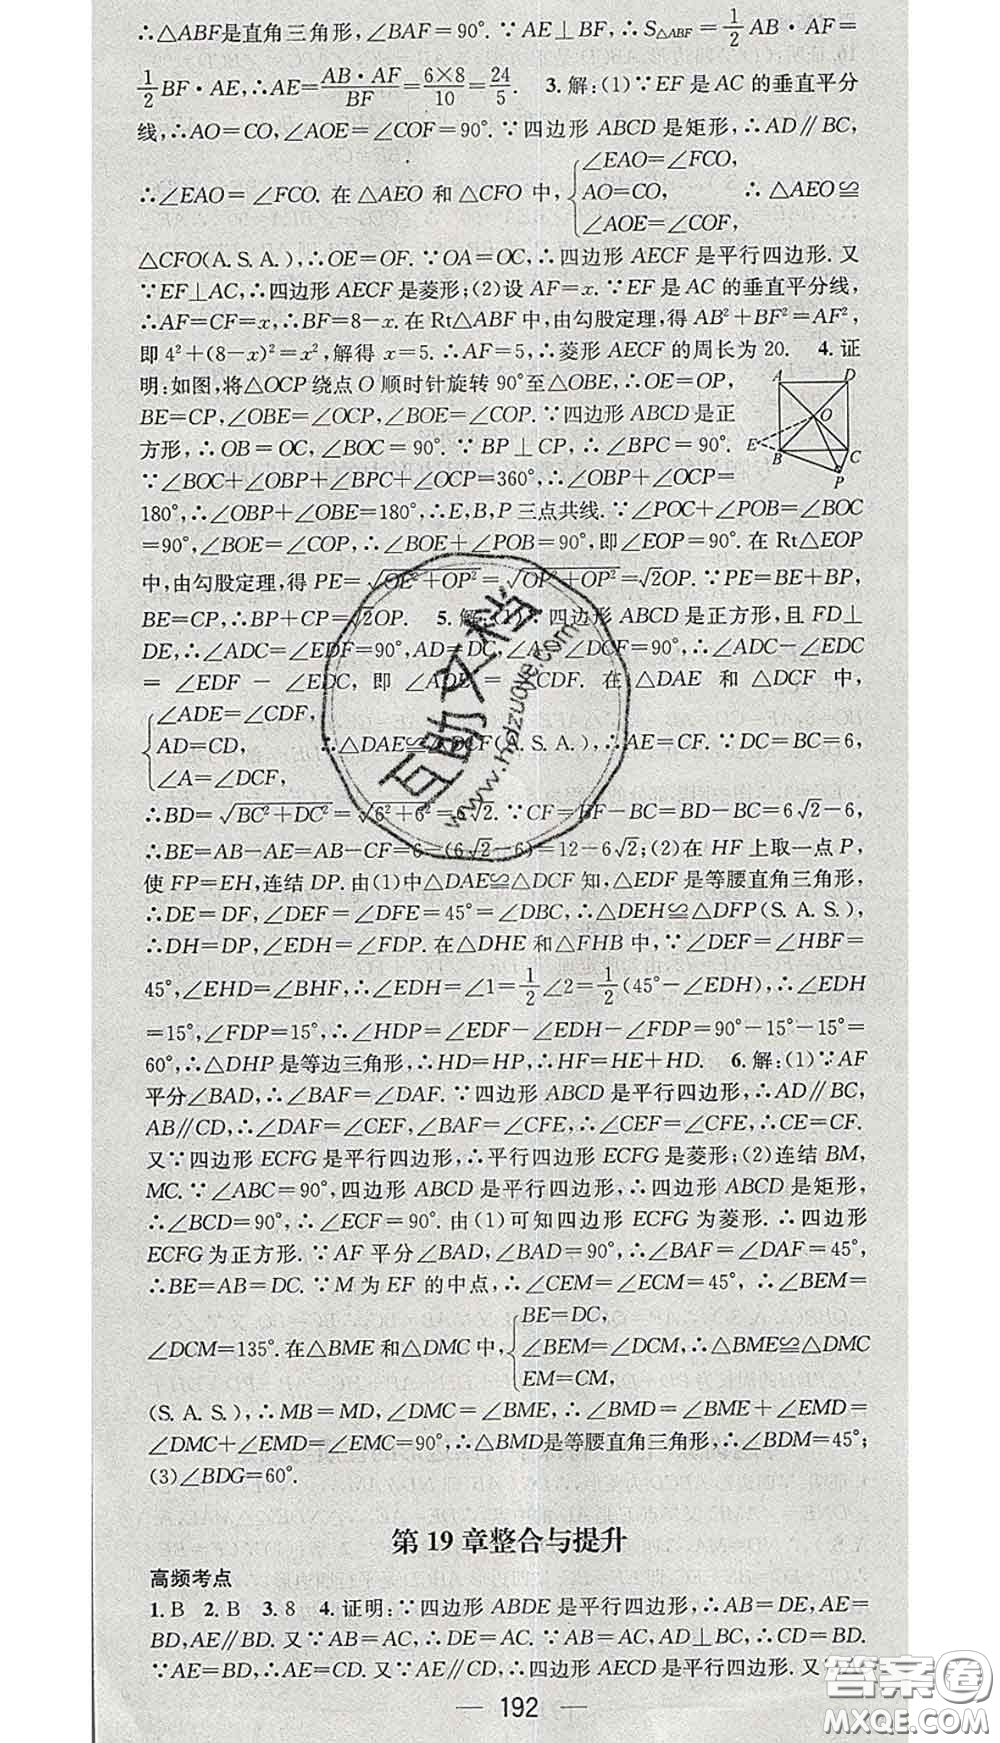 ∴△ABF是直角三角形,∠BAF=90°.∵AE⊥BF,∴S△ABF=1/2 AB·AF=
1/2 BF·AE,∴AE=AB·AF/BF=6×8/10=24/5. 3.解:(1)∵EF是AC的垂直平分
线,∴AO=CO,∠AOE=∠COF=90°.∵四边形ABCD是矩形,∴AD∥BC,
∴∠EAO=∠FCO.在△AEO和△CFO中,{∠EAO=∠FCO, AO=CO, ∠AOE=∠COF, ∴△AEO≌
△CFO(A.S.A.),∴OE=OF.∵OA=OC,∴四边形AECF是平行四边形.又
∵EF⊥AC,∴四边形AECF是菱形;(2)设AF=x.∵EF是AC的垂直平分线,
∴AF=CF=x,∴BF=8-x.在Rt△ABF中,由勾股定理,得AB²+BF²=AF²,
即4²+(8-x)²=x²,解得x=5.∴AF=5,∴菱形AECF的周长为20. 4.证
明:如图,将△OCP绕点O顺时针旋转90°至△OBE,∴OE=OP,
BE=CP,∠OBE=∠OCP,∠BOE=∠COP.∵四边形ABCD是正
方形,∴OB=OC,∠BOC=90°.∵BP⊥CP,∴∠BPC=90°.
∵∠BOC+∠OBP+∠BPC+∠OCP=360°,∴∠OBP+∠OCP=
A D
O
E
B C
P
180°,∴∠OBP+∠OBE=180°,∴E,B,P三点共线.∵∠POC+∠POB=∠BOC
=90°,∠BOE=∠COP,∴∠BOE+∠POB=90°,即∠EOP=90°.在Rt△EOP
中,由勾股定理,得PE=√(OE²+OP²)=√(OP²+OP²)=√2OP.∵PE=BE+BP,
BE=CP,∴BP+CP=√2OP. 5.解:(1)∵四边形ABCD是正方形,且FD⊥
DE,∴∠ADC=∠EDF=90°,AD=DC,∠A=∠DCF=90°,∴∠ADC-∠EDC
=∠EDF-∠EDC,即∠ADE=∠CDF.在△DAE和△DCF中,
{∠ADE=∠CDF, AD=CD, ∠A=∠DCF, ∴△DAE≌△DCF(A.S.A.),∴AE=CF.∵DC=BC=6,
∴BD=√(BC²+DC²)=√(6²+6²)=6√2.∵CF=BF-BC=BD-BC=6√2-6,
∴BE=AB-AE=AB-CF=6-(6√2-6)=12-6√2;(2)在HF上取一点P,
使FP=EH,连结DP.由(1)中△DAE≌△DCF知,△EDF是等腰直角三角形,
∴DE=DF,∠DEF=∠DFE=45°=∠DBC,∴△DEH≌△DFP(S.A.S.),
∴DH=DP,∠EDH=∠FDP.在△DHE和△FHB中,∵∠DEF=∠HBF=
45°,∠EHD=∠BHF,∴∠EDH=∠1=1/2∠2=1/2(45°-∠EDH),∴∠EDH
=15°,∠FDP=15°,∴∠HDP=∠EDF-∠EDH-∠FDP=90°-15°-15°=
60°,∴△DHP是等边三角形,∴HD=HP,∴HF=HE+HD. 6.解:(1)∵AF
平分∠BAD,∴∠BAF=∠DAF.∵四边形ABCD是平行四边形,∴AD∥BC,
AB∥CD,∴∠DAF=∠CEF,∠BAF=∠CFE,∴∠CEF=∠CFE,∴CE=CF.
又∵四边形ECFG是平行四边形,∴平行四边形ECFG是菱形;(2)连结BM,
MC.∵∠ABC=90°,四边形ABCD是平行四边形,∴四边形ABCD是矩形,
∴∠BCD=90°,∴∠ECF=90°.由(1)可知四边形ECFG为菱形.∴四边形
ECFG为正方形.∵AF平分∠BAD,∠BAD=90°,∴∠BAF=∠DAF=45°,
∴BE=AB=DC.∵M为EF的中点,∴∠CEM=∠ECM=45°,∴∠BEM=
∠DCM=135°.在△BME和△DMC中,{BE=DC, ∠BEM=∠DCM, EM=CM, ∴△BME≌△DMC
(S.A.S.),∴MB=MD,∠DMC=∠BME,∴∠BMD=∠BME+∠EMD=
∠DMC+∠EMD=∠EMC=90°,∴△BMD是等腰直角三角形,∴∠BDM=45°;
(3)∠BDG=60°.
第19章整合与提升
高频考点
1.B 2.B 3.8 4.证明:∵四边形ABDE是平行四边形,∴AB=DE,AE=
BD,AE∥BD.又∵AB=AC,∴DE=AC.∵AB=AC,AD⊥BC,∴CD=BD.
∵AE=BD,∴AE=CD.又∵AE∥CD,∴四边形AECD是平行四边形.又∵
192
互助文档
www.hdzuoye.com
答案圈
MXQE.COM